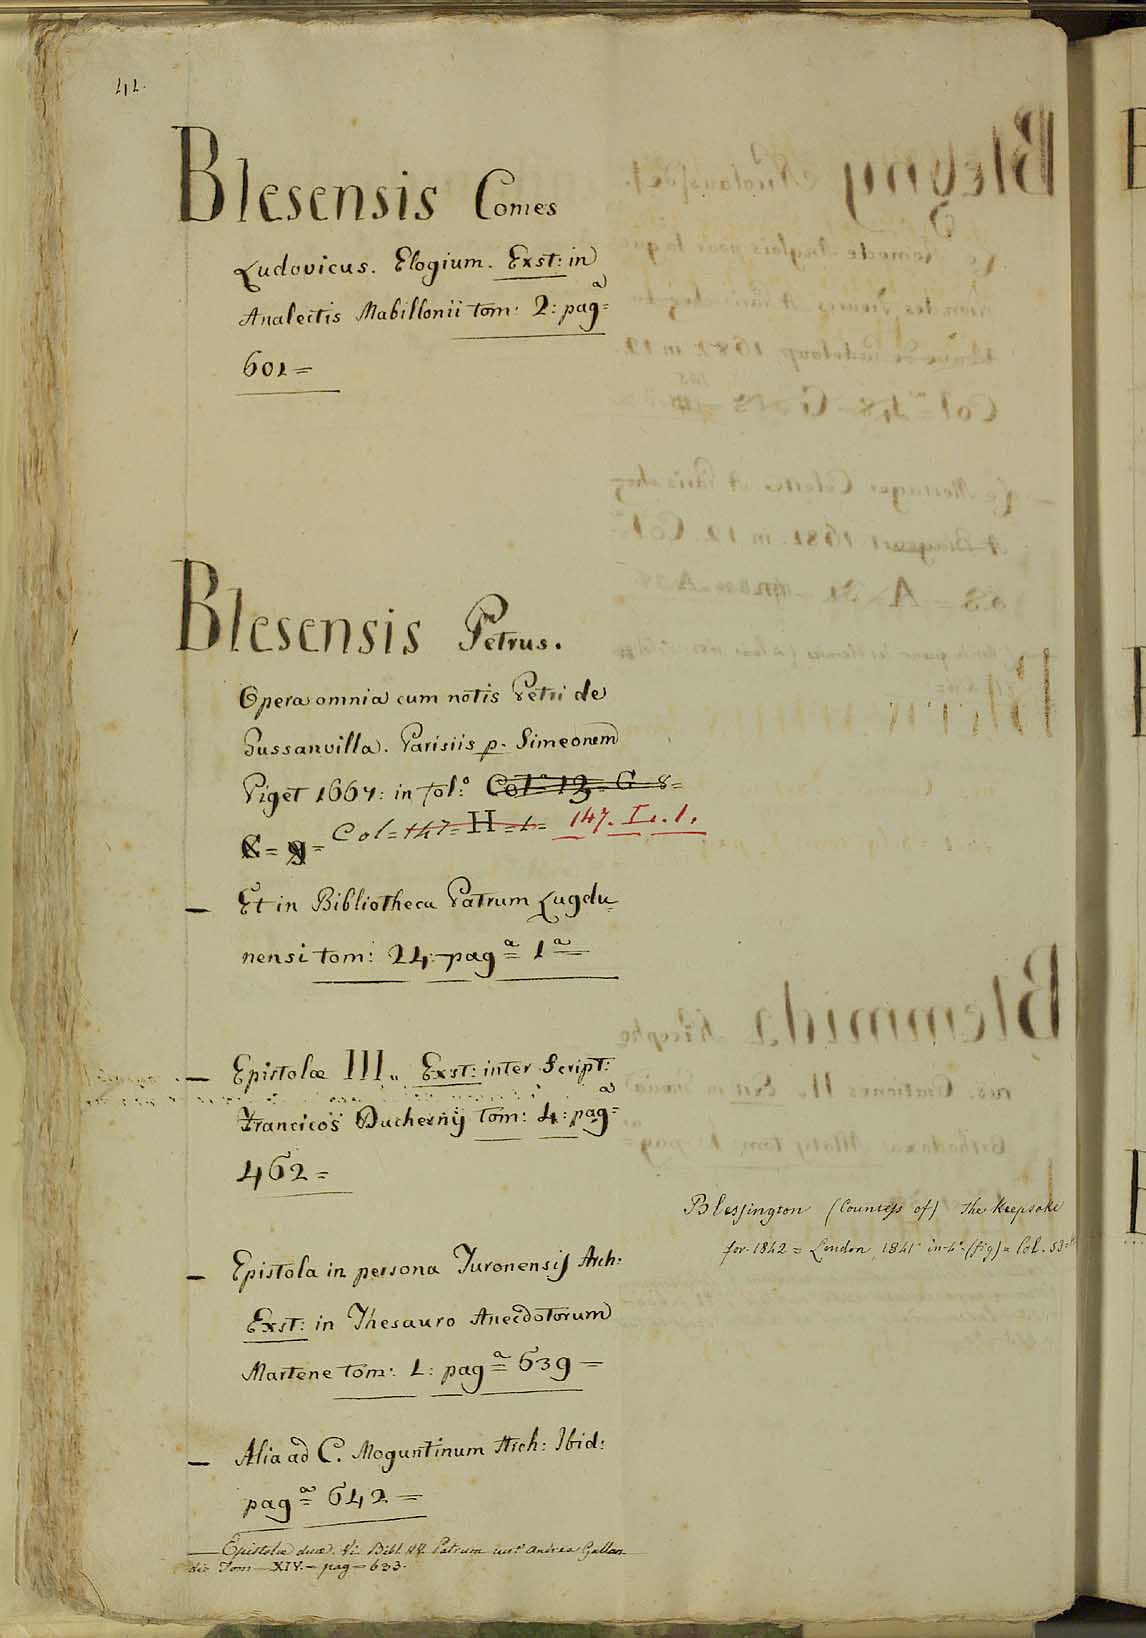 42.
Blesensis Comes
Ludovicus. Elogium. Exst: in
Analectis Mabillonii tom: 2: pagª=
601=
Blesensis Petrus.
Opera omnia cum notis Petri de
Gussanvilla. Parisiis p. Simeonem
Piget 1667: in fol:º Col:ª 13= G=8=
Col=147=H=1= 147. I. 1.
— Et in Bibliotheca Patrum Lugdu=
nensi tom: 24: pagª= 1ª=
— Epistolæ III.. Exst: inter Script:
Francicos Duchesnij tom: 4: pagª=
462=
— Epistola in persona Turonensis Arch:
Exst: in Thesauro Anecdotorum
Martene tom: 1: pagª= 639=
— Alia ad C. Moguntinum Arch: Ibid:
pagª= 642=
— Epistolæ duæ. Bibl. Patrum Andrea Gallan
dio Tom—XIV.—pag—633.
Blessington (Countess of) The Keepsake
for 1842= London 1841 in-4º (fig)= Col. 53